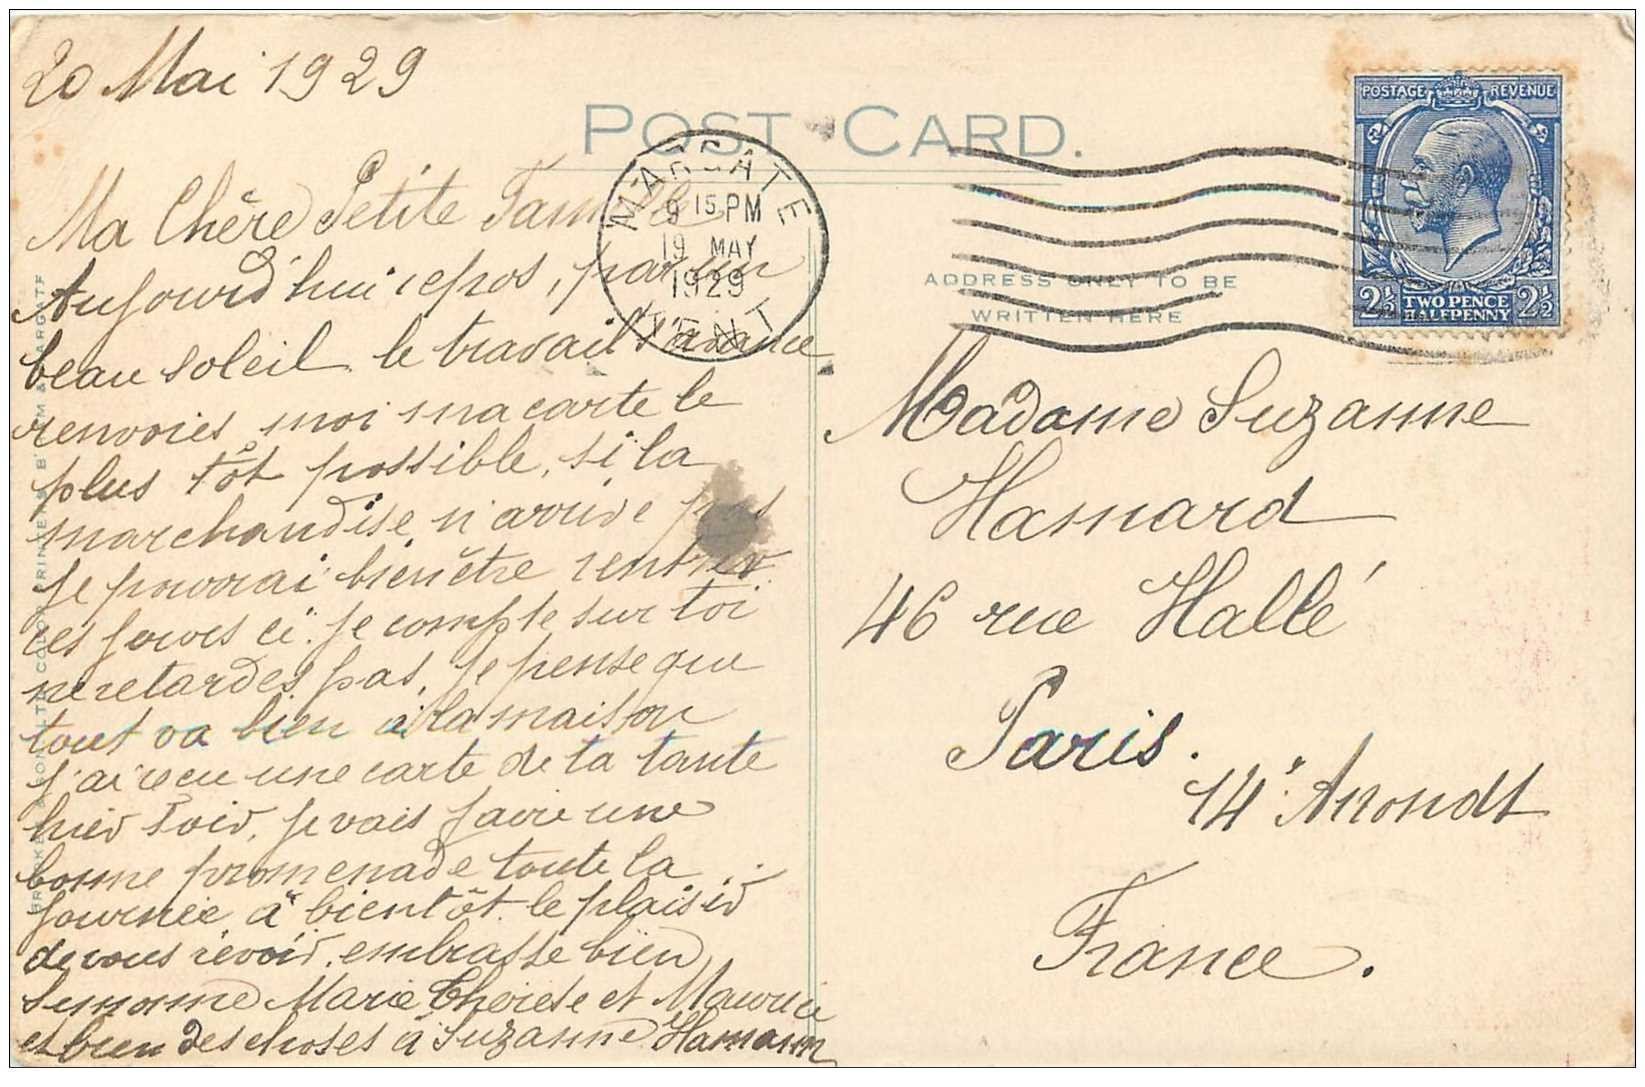 20 Mai 1929
POST CARD.
MARGATE
9 15 PM
19 MAY
1929
KENT
POSTAGE REVENUE
2½ TWO PENCE 2½
HALFPENNY
ADDRESS ONLY TO BE
WRITTEN HERE
Ma Chère Petite Famille
Aujourd'hui repos, par un
beau soleil le travail s'avance
renvoies moi ma carte le
plus tôt possible, si la
marchandise n'arrive pas
je pourrai bien être rentrer
ces jours ci. je compte sur toi
ne retardes pas, je pense que
tout va bien à la maison
j'ai reçu une carte de ta tante
hier soir, je vais faire une
bonne promenade toute la
journée à bientôt le plaisir
de vous revoir, embrasse bien
Simonne Marie Therese et Maurice
et bien des choses à Suzanne Hamann
Madame Suzanne
Hamard
46 rue Hallé
Paris.
14e Arrondt
France.
PRINTERS
MARGATE